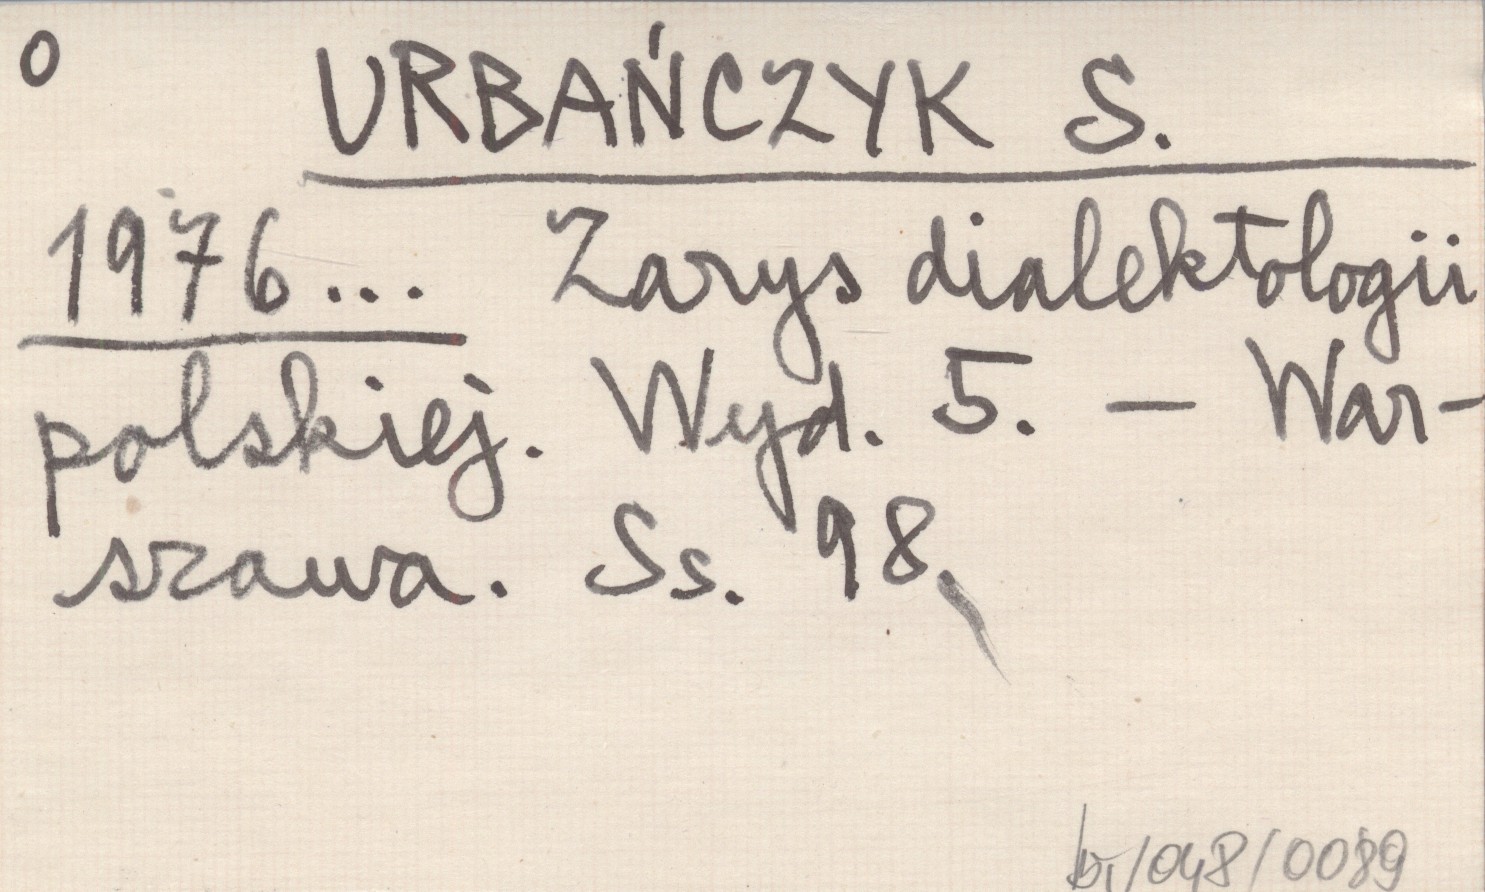 O URBAŃCZYK S.
1976... Zarys dialektologii
polskiej. Wyd. 5. — War-
szawa. Ss. 98.
bi/048/0089